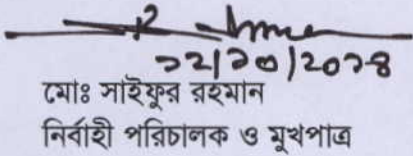 ১২/১০/২০১৪
মোঃ সাইফুর রহমান
নির্বাহী পরিচালক ও মুখপাত্র